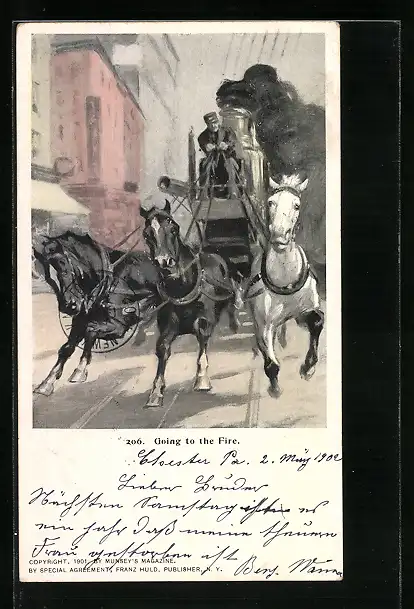 206. Going to the Fire.
Cloester Pa. 2. März 1902
Lieber Bruder
Nächsten Samstag ist es
ein Jahr daß meine theuere
Frau gestorben ist Benj.
COPYRIGHT, 1901, BY MUNSEY'S MAGAZINE.
BY SPECIAL AGREEMENT, FRANZ HULD, PUBLISHER, N. Y.